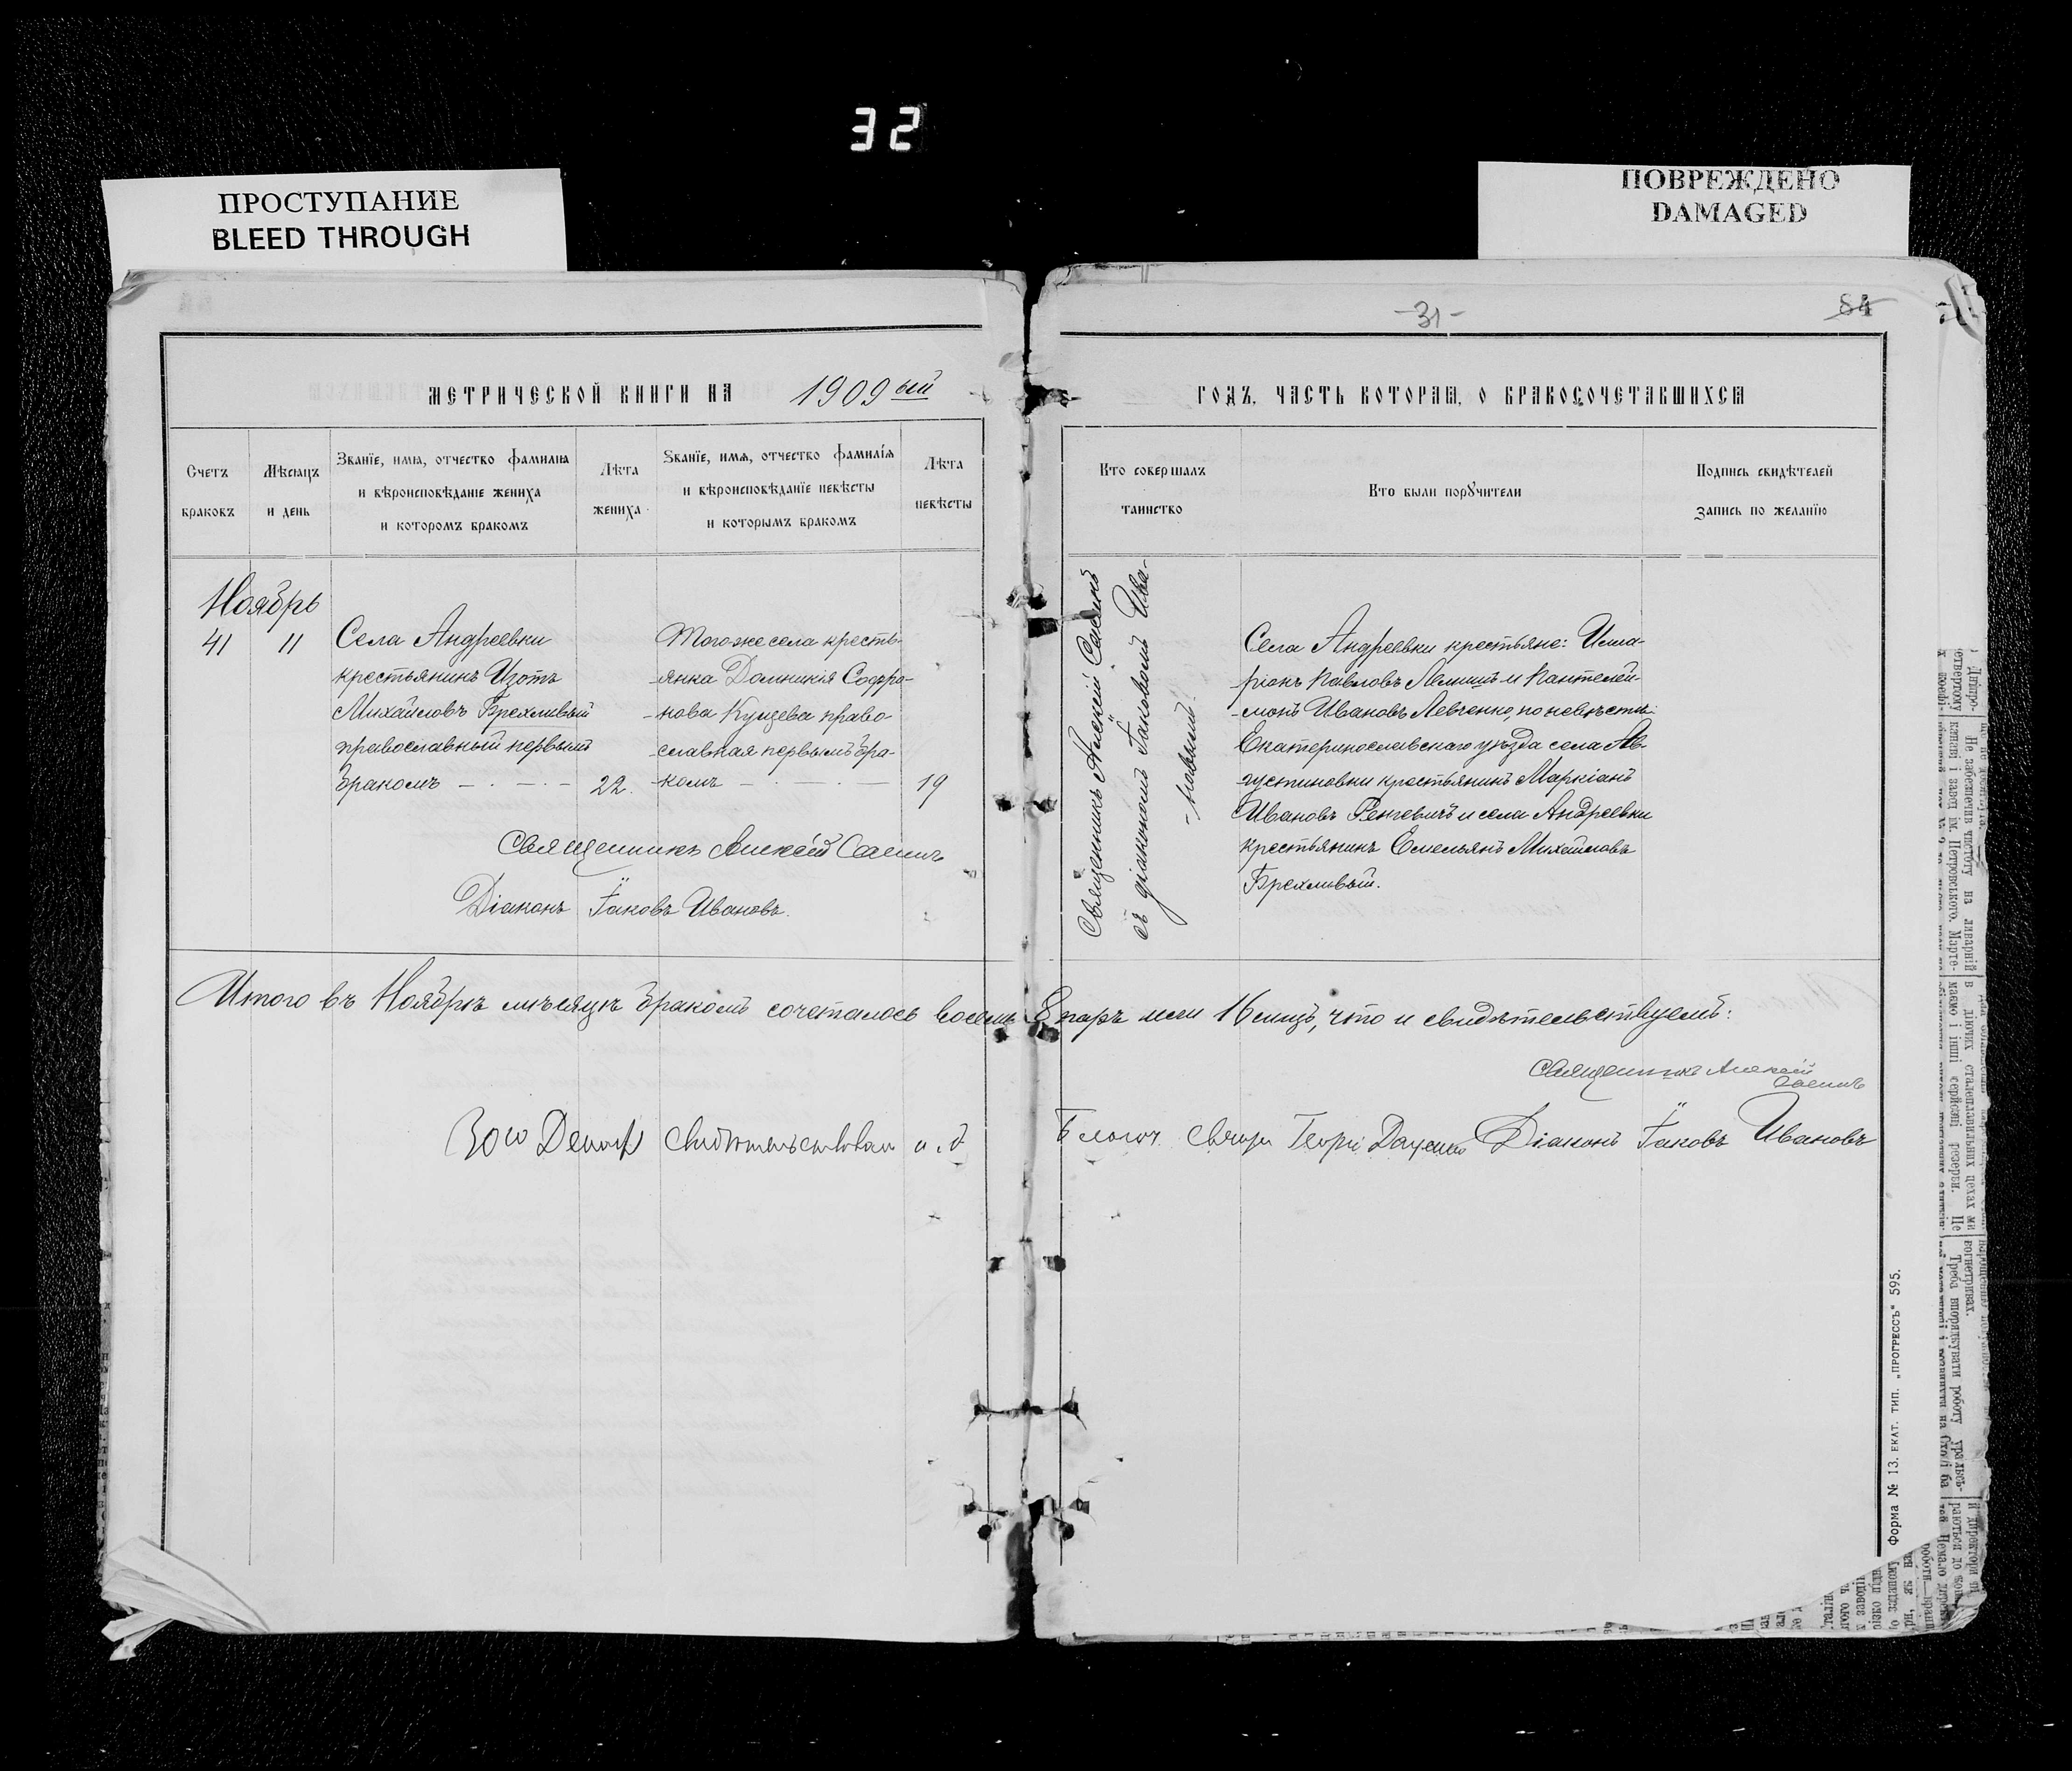 32
ПРОСТУПАНИЕ
BLEED THROUGH
ПОВРЕЖДЕНО
DAMAGED
-31-
84
МЕТРИЧЕСКОЙ КНИГИ НА 1909 ый
ГОДЪ, ЧАСТЬ ВТОРАЯ, О БРАКОСОЧЕТАВШИХСЯ
Счетъ
браковъ
Мѣсяцъ
и день
Званіе, имя, отчество фамилия
и вѣроисповѣданіе жениха
и которомъ бракомъ
Лѣта
жениха
Званіе, имя, отчество фамилія
и вѣроисповѣданіе невѣсты
и которымъ бракомъ
Лѣта
невѣсты
Кто совершалъ
таинство
Кто были поручители
Подпись свидѣтелей
запись по желанію
Ноябрь
41
11
Села Андреевки
крестьянинъ Изотъ
Михайловъ Брехливый
православный первымъ
бракомъ
22.
Того же села кресть-
янка Домникія Софро-
нова Куцева право-
славная первымъ бра-
комъ
19
Священникъ Алексій
Діаконъ Іаковъ Ивановъ.
Священникъ Алексій
съ діакономъ Іаковомъ Ива-
новымъ
Села Андреевки крестьяне: Илла-
ріонъ Павловъ и Пантелей-
монъ Ивановъ Левченко, по невѣстѣ:
Екатеринославскаго уѣзда села Ав-
густиновки крестьянинъ Маркіанъ
Ивановъ и села Андреевки
крестьянинъ Емельянъ Михайловъ
Брехливый.
Итого въ Ноябрѣ мѣсяцѣ бракомъ сочеталось восемь 8 паръ или 16 лицъ, что и свидѣтельствуемъ:
Священникъ Алексій
30го Декабр свидѣтельствовал и.д Благоч. Георгій Доценко
Діаконъ Іаковъ Ивановъ
Форма № 13. ЕКАТ. ТИП. „ПРОГРЕССЪ" 595.